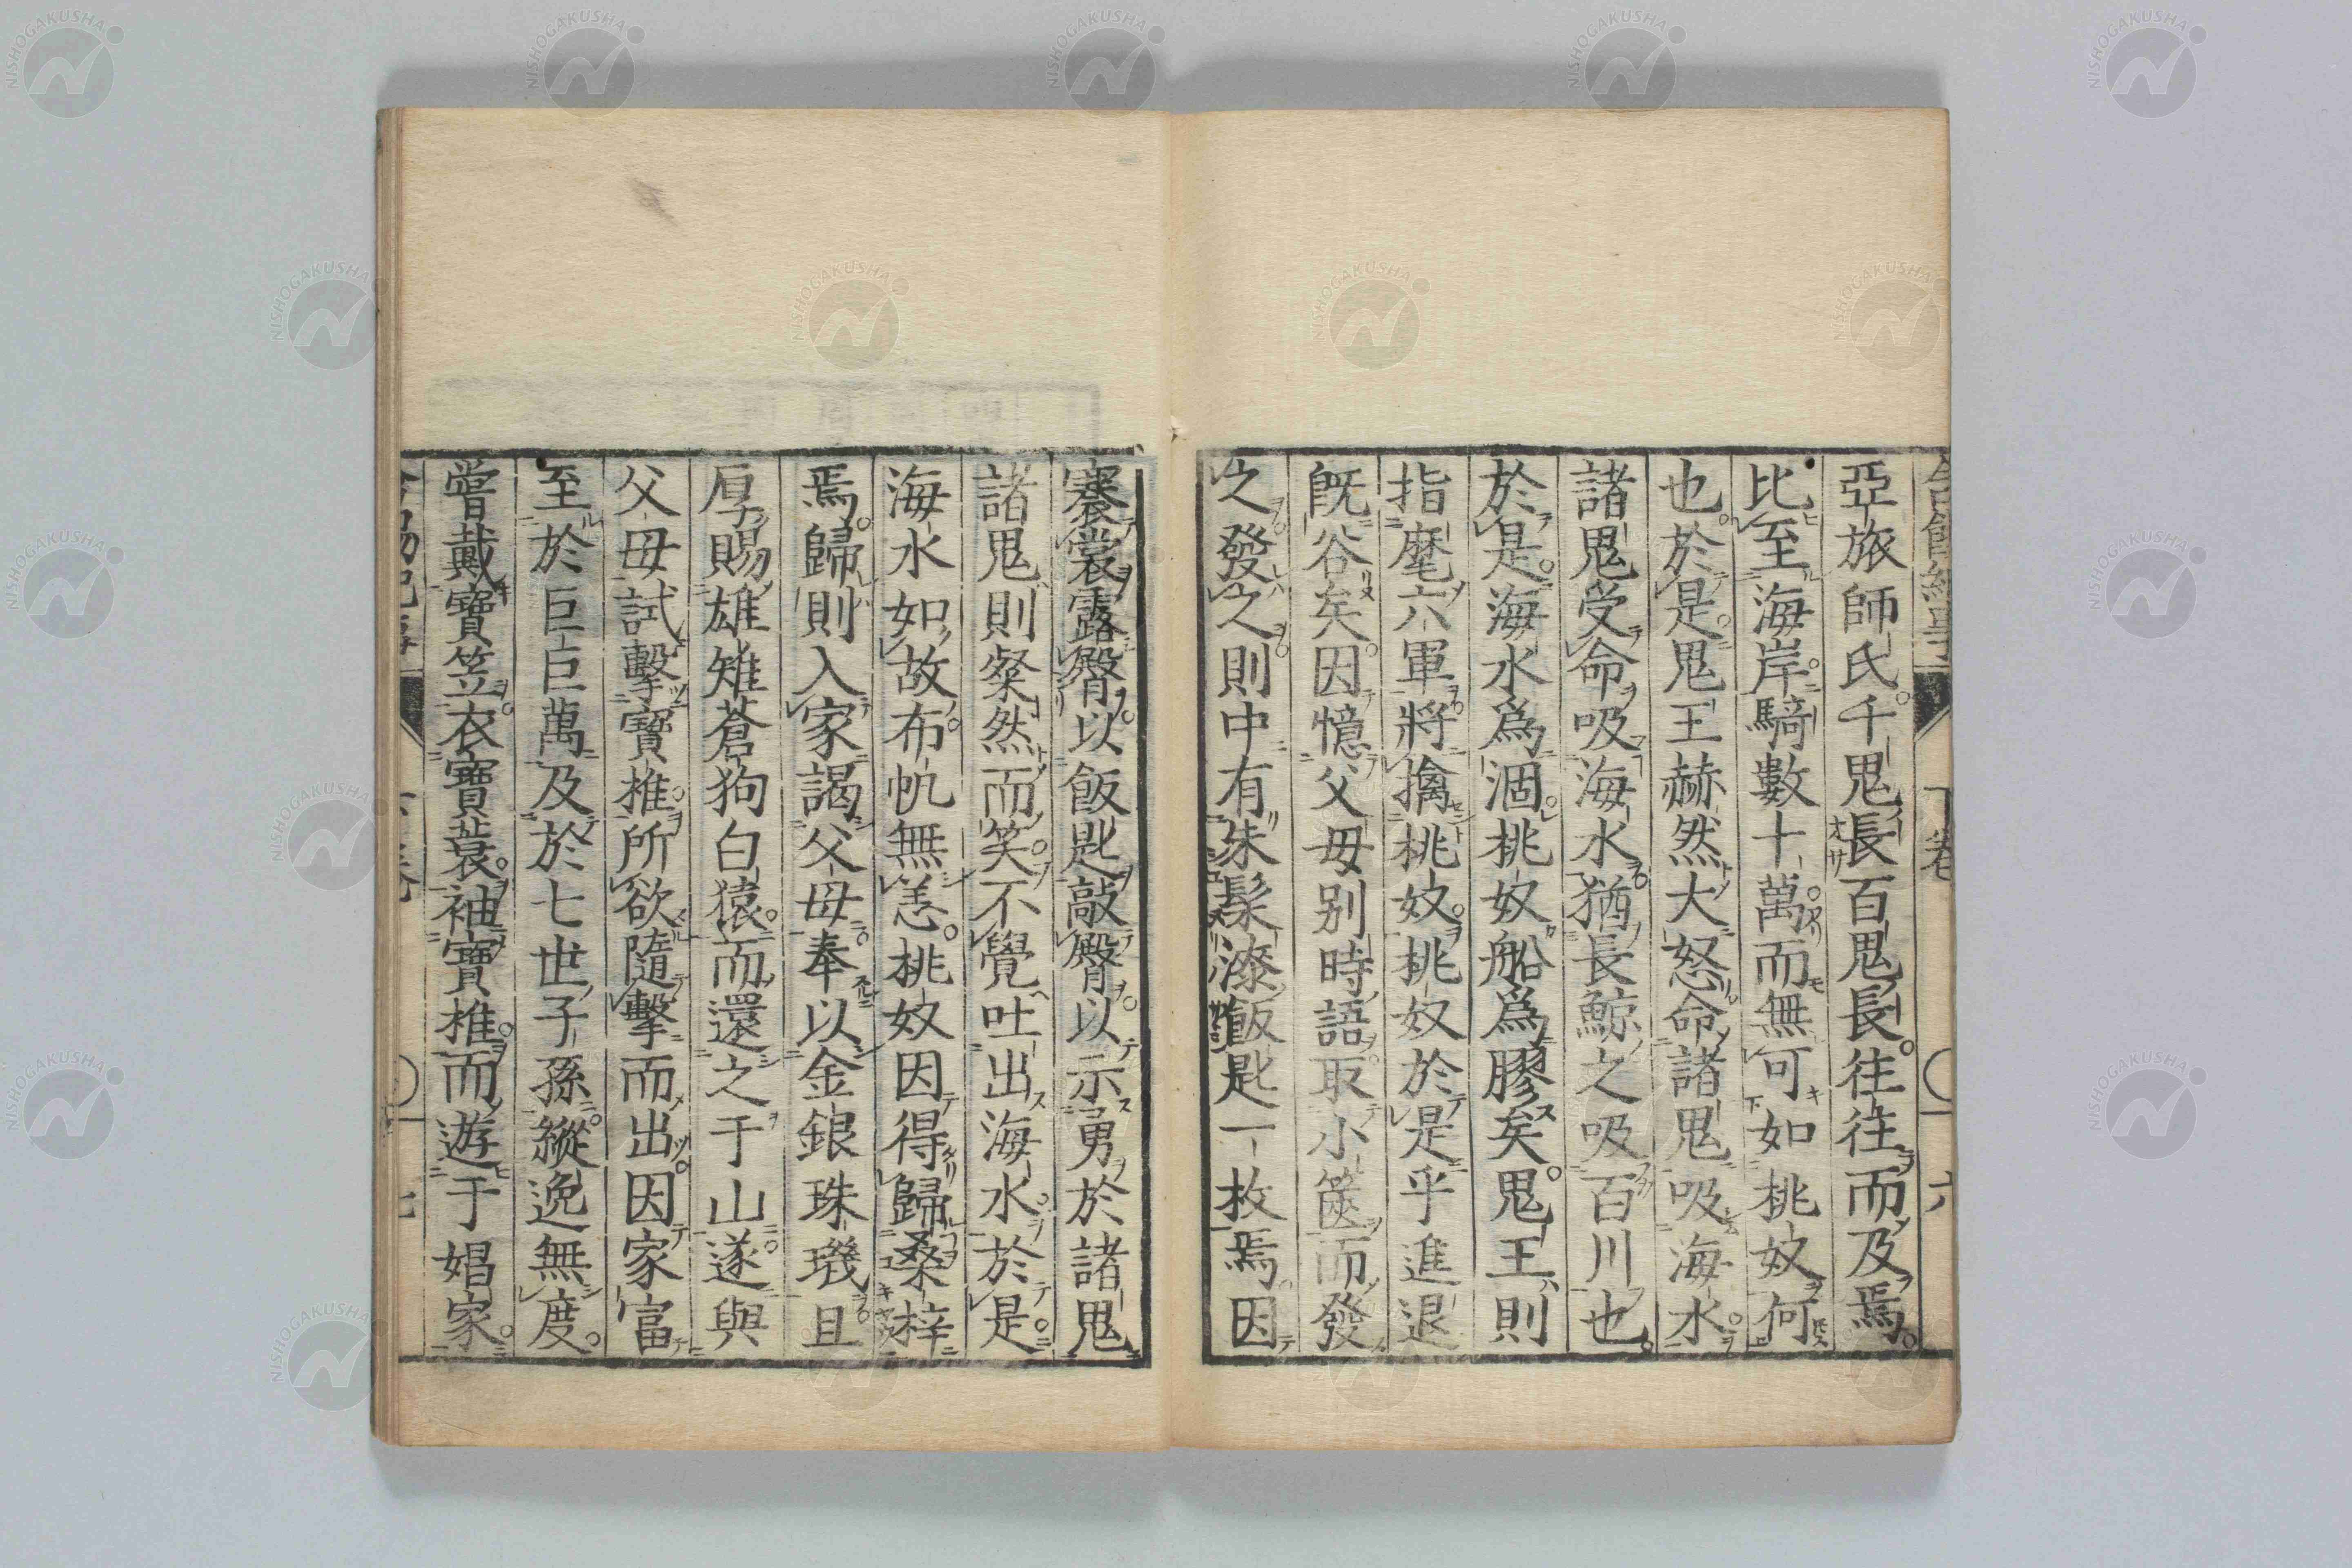 亞旅師氏千鬼長百鬼長往往而及焉
比至海岸騎數十萬而無可如桃奴何
也於是鬼王赫然大怒命諸鬼吸海水
諸鬼受命吸海水猶長鯨之吸百川也
於是海水爲涸桃奴船爲膠矣鬼王則
指麾六軍將擒桃奴桃奴於是乎進退
旣谷矣因憶父母别時語取小篋而發
之發之則中有朱髹漆飯匙一枚焉因
褰裳露臀以飯匙敲臀以示勇於諸鬼
諸鬼則粲然而笑不覺吐出海水於是
海水如故布帆無恙桃奴因得歸桑梓
焉歸則入家謁父母奉以金銀珠璣且
厚賜雄雉蒼狗白猿而還之于山遂與
父母試擊寶椎所欲隨擊而出因家富
至於巨巨萬及於七世子孫縱逸無度
嘗戴寶笠衣寶蓑袖寶椎而遊于娼家
下卷 六
NISHOGAKUSHA